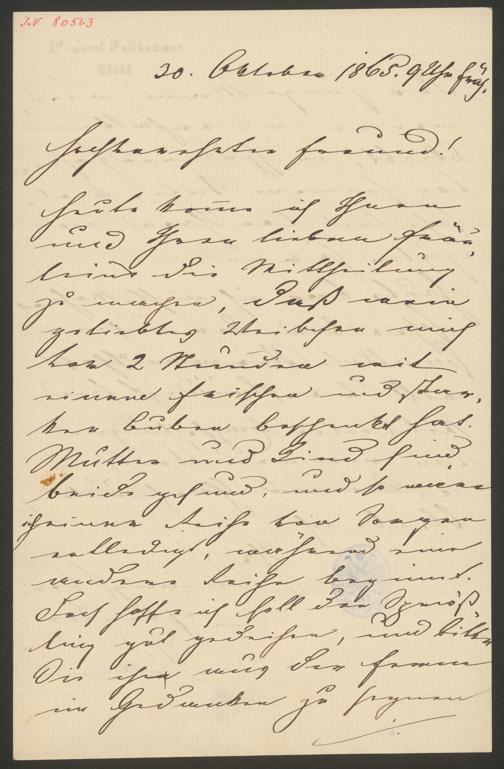 IN 80563
20. Oktober 1865. 9 Uhr früh.
Hochverehrter Freund!
Heute komme ich Ihnen
und Ihren lieben Fräu-
leins die Mittheilung
zu machen, daß mein
geliebtes Weibchen mich
vor 2 Stunden mit
einem frischen und star-
ken Buben beschenkt hat.
Mutter und Kind sind
beide gesund, und so wäre
ich einer Reihe von Sorgen
entledigt, während eine
andere Reihe beginnt.
Doch hoffe ich soll der Spröß-
ling gut gedeihen, und bitte
Sie ihn aus der Ferne
in Gedanken zu segnen